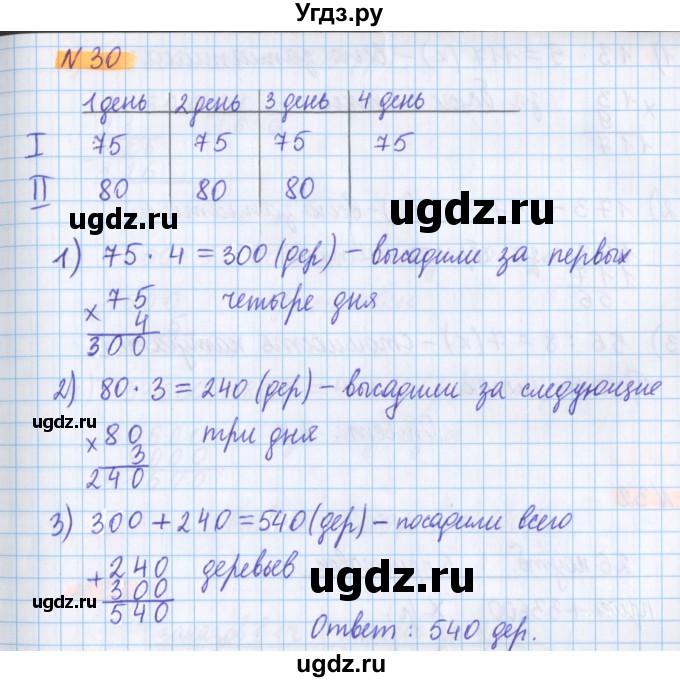 Угдз.ру
N 30
1 день 2 день 3 день 4 день
I 75 75 75 75
II 80 80 80
ugdz.ru ugdz.ru
1) 75 · 4 = 300 (дер) – высадили за первых
× 75 четыре дня
4
300
ugdz.ru
2) 80 · 3 = 240 (дер) – высадили за следующие
ugdz.ru
× 80 три дня
3
240
ugdz.ru
3) 300 + 240 = 540 (дер) – посадили всего
+ 240 деревьев
ugdz.ru
300
ugdz.ru
540
Ответ: 540 дер.
ugdz.ru